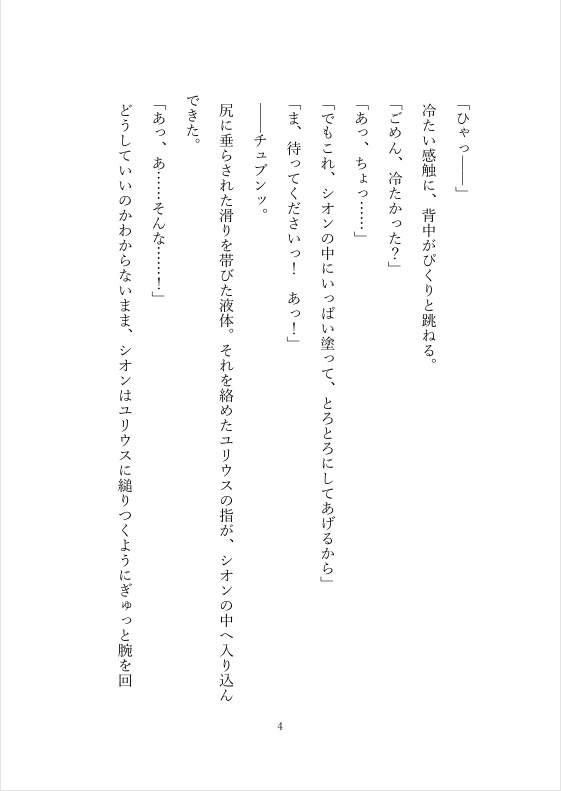 「ひゃっ――」
冷たい感触に、背中がぴくりと跳ねる。
「ごめん、冷たかった？」
「あっ、ちょっ……」
「でもこれ、シオンの中にいっぱい塗って、とろとろにしてあげるから」
「ま、待ってくださいっ！　あっ！」
――チュプンッ。
尻に垂らされた滑りを帯びた液体。それを絡めたユリウスの指が、シオンの中へ入り込ん
できた。
「あっ、あ……そんな……！」
どうしていいのかわからないまま、シオンはユリウスに縋りつくようにぎゅっと腕を回
4